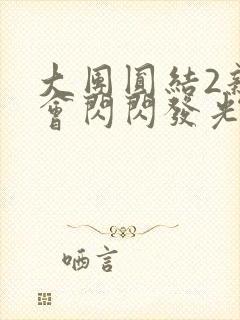 大團圓結2新
會閃閃發光
哂言